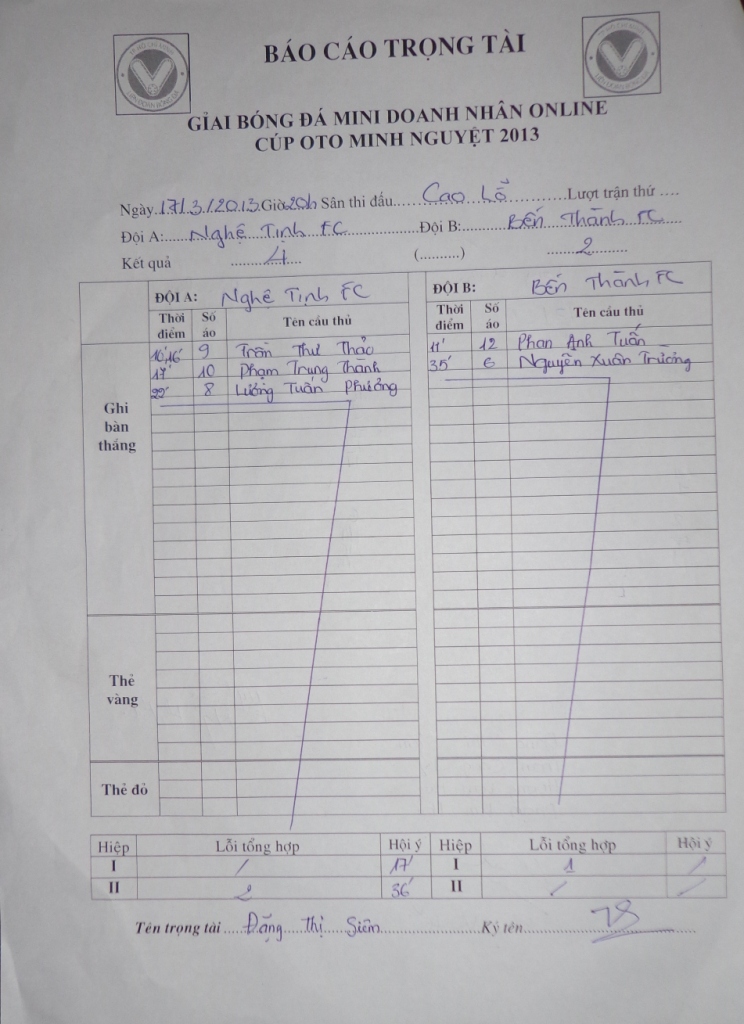 BÁO CÁO TRỌNG TÀI
GIẢI BÓNG ĐÁ MINI DOANH NHÂN ONLINE
CÚP OTO MINH NGUYỆT 2013
Ngày 17/3/2013 Giờ 20h Sân thi đấu Cao Lỗ Lượt trận thứ ....
Đội A: Nghệ Tịnh FC Đội B: Bến Thành FC
Kết quả 4 (..........) 2
ĐỘI A: Nghệ Tịnh FC ĐỘI B: Bến Thành FC
Thời điểm Số áo Tên cầu thủ Thời điểm Số áo Tên cầu thủ
Ghi bàn thắng
10'16' 9 Trần Thư Thảo 11' 12 Phan Anh Tuấn
17' 10 Phạm Trung Thành 35' 6 Nguyễn Xuân Trường
22' 8 Lương Tuấn Phương
Thẻ vàng
Thẻ đỏ
Hiệp Lỗi tổng hợp Hội ý Hiệp Lỗi tổng hợp Hội ý
I / 17' I 1 /
II 2 36' II / /
Tên trọng tài Đặng Thị Siêm Ký tên